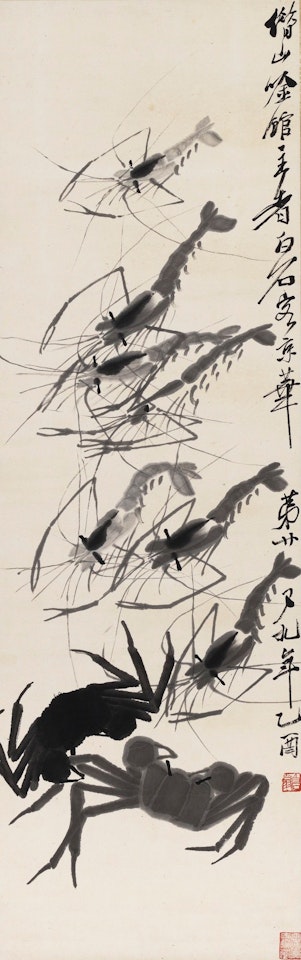 借山唫館主者白石客京華第廿又九年乙酉